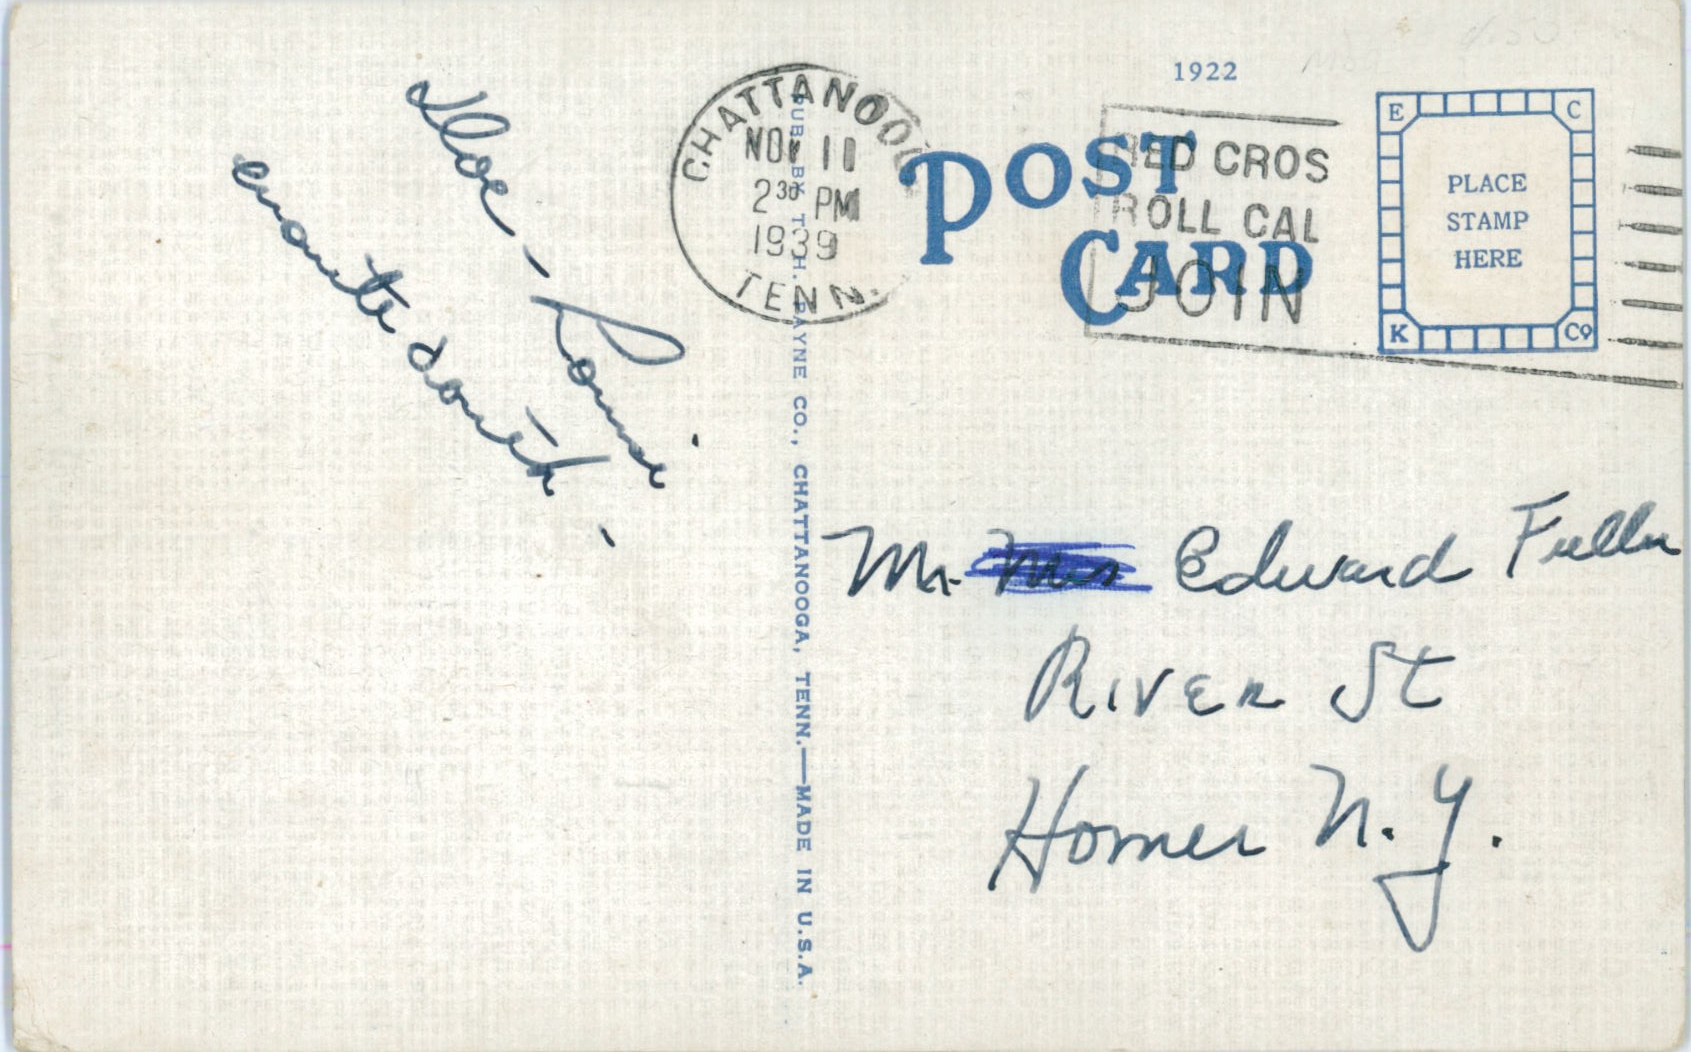 Doc, Louise
enroute south -
CHATTANOOG
NOV 11
2 30 PM
1939
TENN.
PUB. BY T. H. PAYNE CO., CHATTANOOGA, TENN.—MADE IN U.S.A.
1922
POST
CARD
RED CROS
ROLL CAL
JOIN
E C
PLACE
STAMP
HERE
K Co
Mr. Mrs Edward Fuller
RIVER St
Homer N.Y.